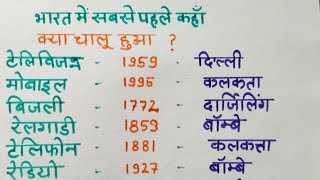 भारत में सबसे पहले कहाँ
क्या चालू हुआ ?
टेलिविजन - 1959 - दिल्ली
मोबाइल - 1995 - कलकता
बिजली - 1772 - दार्जिलिंग
रेलगाडी - 1853 - बॉम्बे
टेलिफोन - 1881 - कलकत्ता
रेडियो - 1927 - बॉम्बे